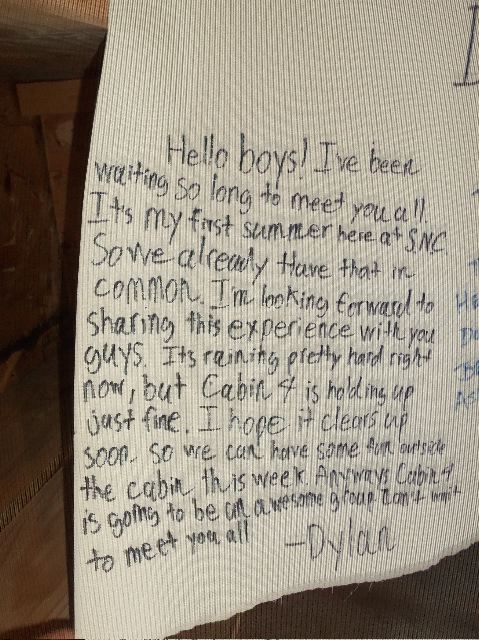 Hello boys! I've been
waiting so long to meet you all.
It's my first summer here at SNC
So we already have that in
common. I'm looking forward to
sharing this experience with you
guys. Its raining pretty hard right
now, but Cabin 4 is holding up
just fine. I hope it clears up
soon so we can have some fun outside
the cabin this week. Anyways Cabin 4
is going to be an awesome group. Can't wait
to meet you all
—Dylan